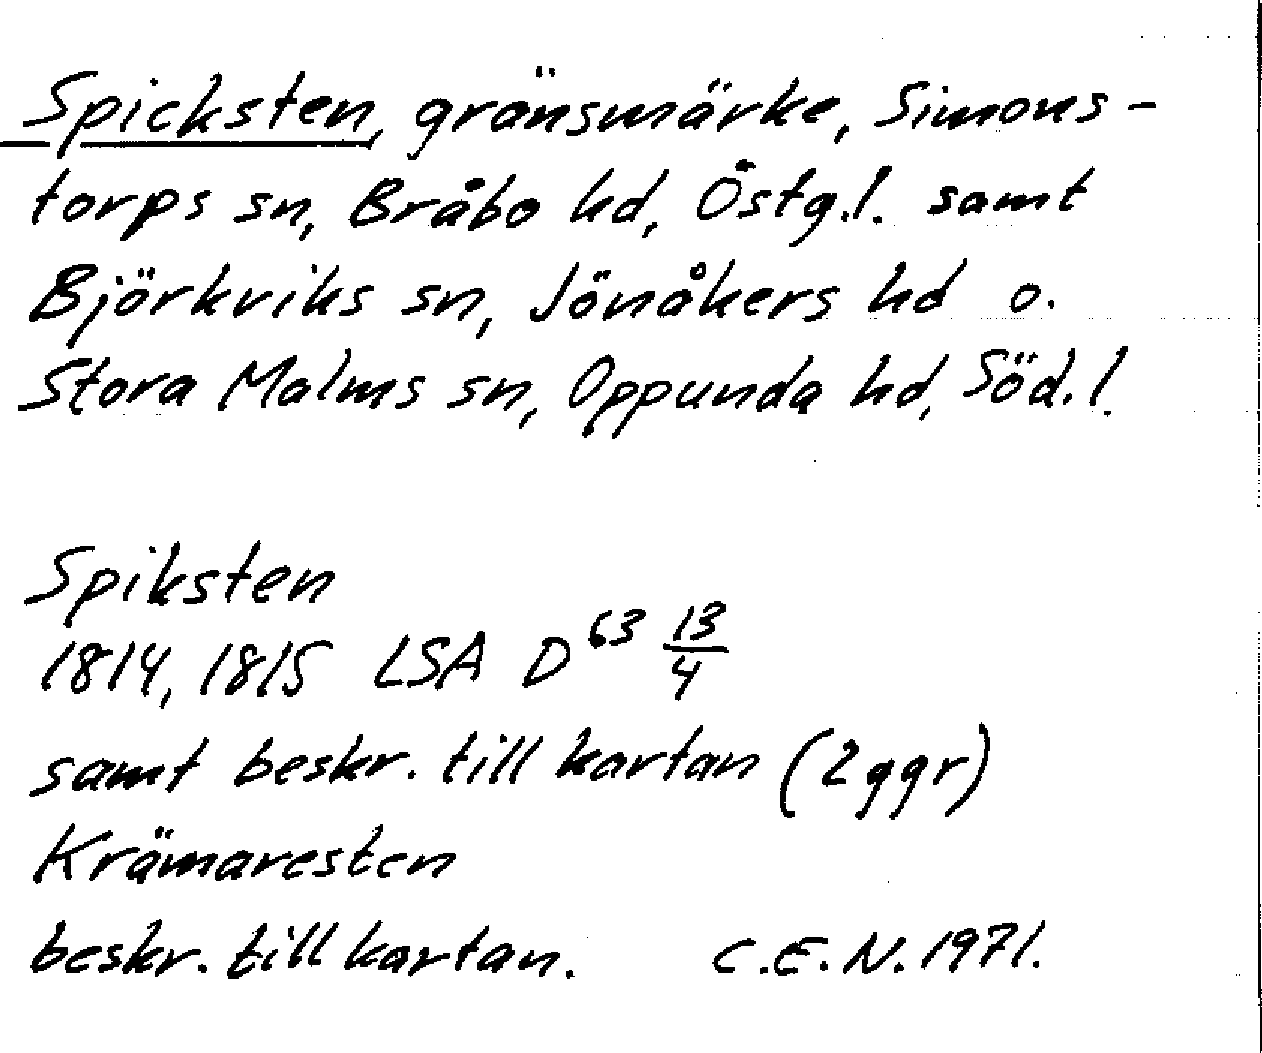 Spicksten, gränsmärke, Simons-
torps sn, Bråbo hd, Östg.l. samt
Björkviks sn, Jönåkers hd o.
Stora Malms sn, Oppunda hd, Söd.l.
Spiksten
1814, 1815 LSA D⁶³ 13/4
samt beskr. till kartan (2 ggr)
Krämaresten
beskr. till kartan. C.E.N. 1971.